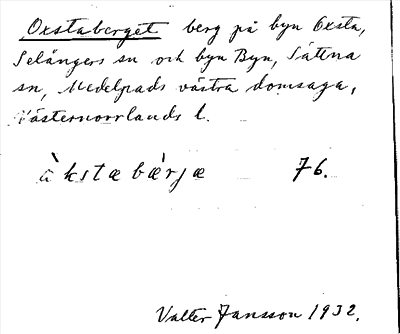 Oxstaberget berg på byn Oxsta,
Selångers sn och byn Byn, Sättna
sn, Medelpads västra domsaga,
Västernorrlands l.
àkstæbærjæ 76.
Valter Jansson 1932.